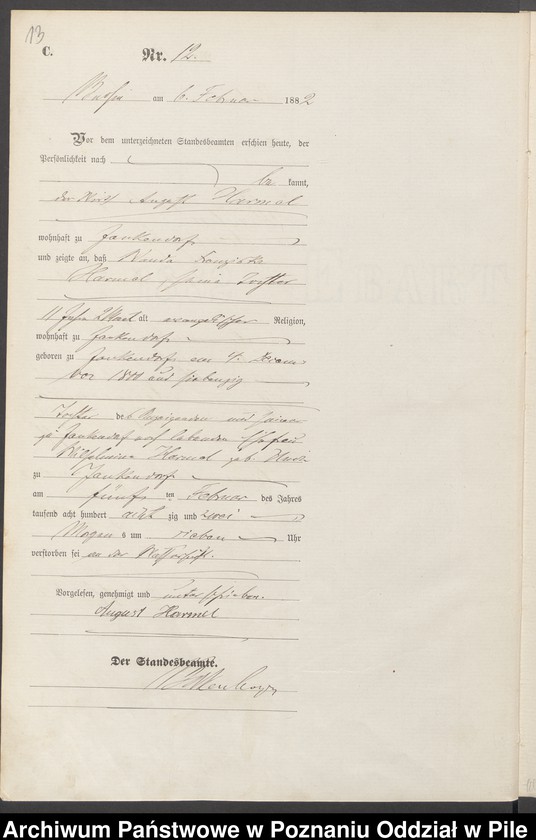 13
C.
Nr. 12.
am 6. Februar 1882
Vor dem unterzeichneten Standesbeamten erschien heute, der
Persönlichkeit nach
be kannt,
der Wirth August Harmel
wohnhaft zu Jankendorf
und zeigte an, daß Wanda
Harmel, seine Tochter
11 Jahr 2 Monat alt evangelischer Religion,
wohnhaft zu Jankendorf
geboren zu Jankendorf am 4. Dezem
ber 1800 und siebenzig
Tochter des Anzeigenden und seiner
zu Jankendorf noch lebenden Ehefrau
Wilhelmine Harmel geb.
zu Jankendorf
am fünf ten Februar des Jahres
tausend acht hundert acht zig und zwei
Morgens um sieben Uhr
verstorben sei an der
Vorgelesen, genehmigt und unterschrieben.
August Harmel
Der Standesbeamte.
Archiwum Państwowe w Poznaniu Oddział w Pile